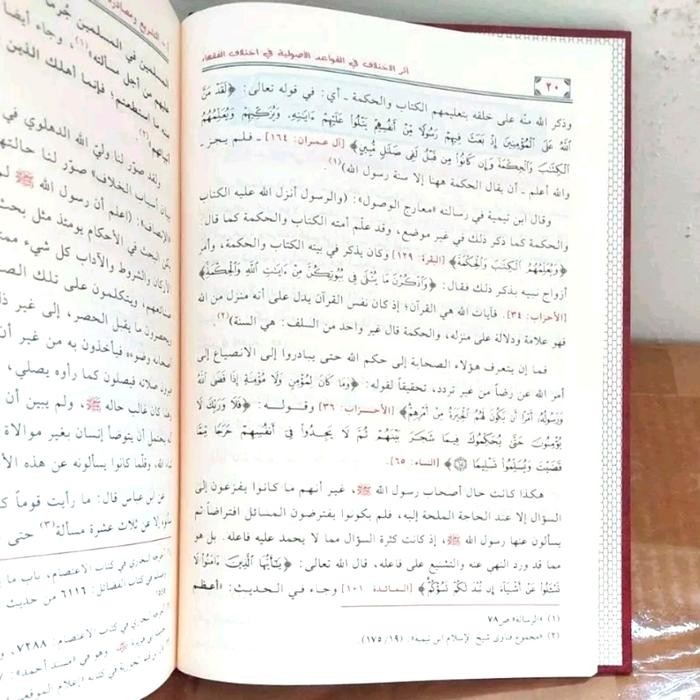 ٢٠
أثر الاختلاف في القواعد الأصولية في اختلاف الفقهاء
وذكر الله منّه على خلقه بتعليمهم الكتاب والحكمة - أي: في قوله تعالى: ﴿لَقَدْ مَنَّ
اللَّهُ عَلَى الْمُؤْمِنِينَ إِذْ بَعَثَ فِيهِمْ رَسُولًا مِّنْ أَنفُسِهِمْ يَتْلُوا عَلَيْهِمْ ءَايَٰتِهِ، وَيُزَكِّيهِمْ وَيُعَلِّمُهُمُ
الْكِتَٰبَ وَالْحِكْمَةَ وَإِن كَانُوا مِن قَبْلُ لَفِي ضَلَٰلٍ مُّبِينٍ﴾ [آل عمران: ١٦٤] - فلم يجز -
والله أعلم - أن يقال الحكمة ههنا إلا سنة رسول الله)(١).
وقال ابن تيمية في رسالته «معارج الوصول»: (والرسول أنزل الله عليه الكتاب
والحكمة كما ذكر ذلك في غير موضع، وقد علّم أمته الكتاب والحكمة كما قال:
﴿وَيُعَلِّمُهُمُ الْكِتَٰبَ وَالْحِكْمَةَ﴾ [البقرة: ١٢٩] وكان يذكر في بيته الكتاب والحكمة، وأمر
أزواج نبيه بذكر ذلك فقال: ﴿وَاذْكُرْنَ مَا يُتْلَىٰ فِي بُيُوتِكُنَّ مِنْ ءَايَٰتِ اللَّهِ وَالْحِكْمَةِ﴾
[الأحزاب: ٣٤]. فآيات الله هي القرآن؛ إذ كان نفس القرآن يدل على أنه منزل من الله
فهو علامة ودلالة على منزله، والحكمة قال غير واحد من السلف: هي السنة)(٢).
فما إن يتعرف هؤلاء الصحابة إلى حكم الله حتى يبادروا إلى الانصياع إلى
أمر الله عن رضاً من غير تردد، تحقيقاً لقوله: ﴿وَمَا كَانَ لِمُؤْمِنٍ وَلَا مُؤْمِنَةٍ إِذَا قَضَى اللَّهُ
وَرَسُولُهُ، أَمْرًا أَن يَكُونَ لَهُمُ الْخِيَرَةُ مِنْ أَمْرِهِمْ﴾ [الأحزاب: ٣٦] وقوله: ﴿فَلَا وَرَبِّكَ لَا
يُؤْمِنُونَ حَتَّىٰ يُحَكِّمُوكَ فِيمَا شَجَرَ بَيْنَهُمْ ثُمَّ لَا يَجِدُوا فِي أَنفُسِهِمْ حَرَجًا مِّمَّا
قَضَيْتَ وَيُسَلِّمُوا تَسْلِيمًا﴾ [النساء: ٦٥].
هكذا كانت حال أصحاب رسول الله ﷺ، غير أنهم ما كانوا يفزعون إلى
السؤال إلا عند الحاجة الملحة إليه، فلم يكونوا يفترضون المسائل افتراضاً ثم
يسألون عنها رسول الله ﷺ، إذ كانت كثرة السؤال مما لا يحمد عليه فاعله. بل هو
مما قد ورد النهي عنه والتشنيع على فاعله، قال الله تعالى: ﴿يَٰأَيُّهَا الَّذِينَ ءَامَنُوا لَا
تَسْـَٔلُوا عَنْ أَشْيَاءَ إِن تُبْدَ لَكُمْ تَسُؤْكُمْ﴾ [المائدة: ١٠١] وجاء في الحديث: «أعظم
(١) «الرسالة» ص٧٨
(٢) «مجموع فتاوى شيخ الإسلام ابن تيمية» (١٩/ ١٧٥).
١ - التشريع ومصادره
المسلمين في المسلمين جُرماً
عليهم من أجل مسألته»(١). وجاء أيضاً
منه ما استطعتم؛ فإنما أهلك الذين
أنبيائهم»(٢)
ولقد صوّر لنا وليّ الله الدهلوي في
بيان أسباب الخلاف» صوّر لنا حالتهم
«الإنصاف»: (اعلم أن رسول الله ﷺ لم
يكن البحث في الأحكام يومئذ مثل بحث
الأركان والشروط والآداب كل شيء ممتا
ويتكلمون على تلك الصو
ويحصرون ما يقبل الحصر، إلى غير ذلك
وضوءه فيأخذون به من غير أن
صلاته فيصلون كما رأوه يصلي،
كان غالب حاله ﷺ، ولم يبين أن
يحتمل أن يتوضأ إنسان بغير موالاة
الله، وقلّما كانوا يسألونه عن هذه الأ
عن ابن عباس قال: ما رأيت قوماً كا
إلا عن ثلاث عشرة مسألة(٣) حتى
البخاري في كتاب الاعتصام، باب ما
ومسلم في كتاب الفضائل: ٦١١٦ من حديث
البخاري في كتاب الاعتصام: ٧٢٨٨،
وهو في «مسند أحمد»: